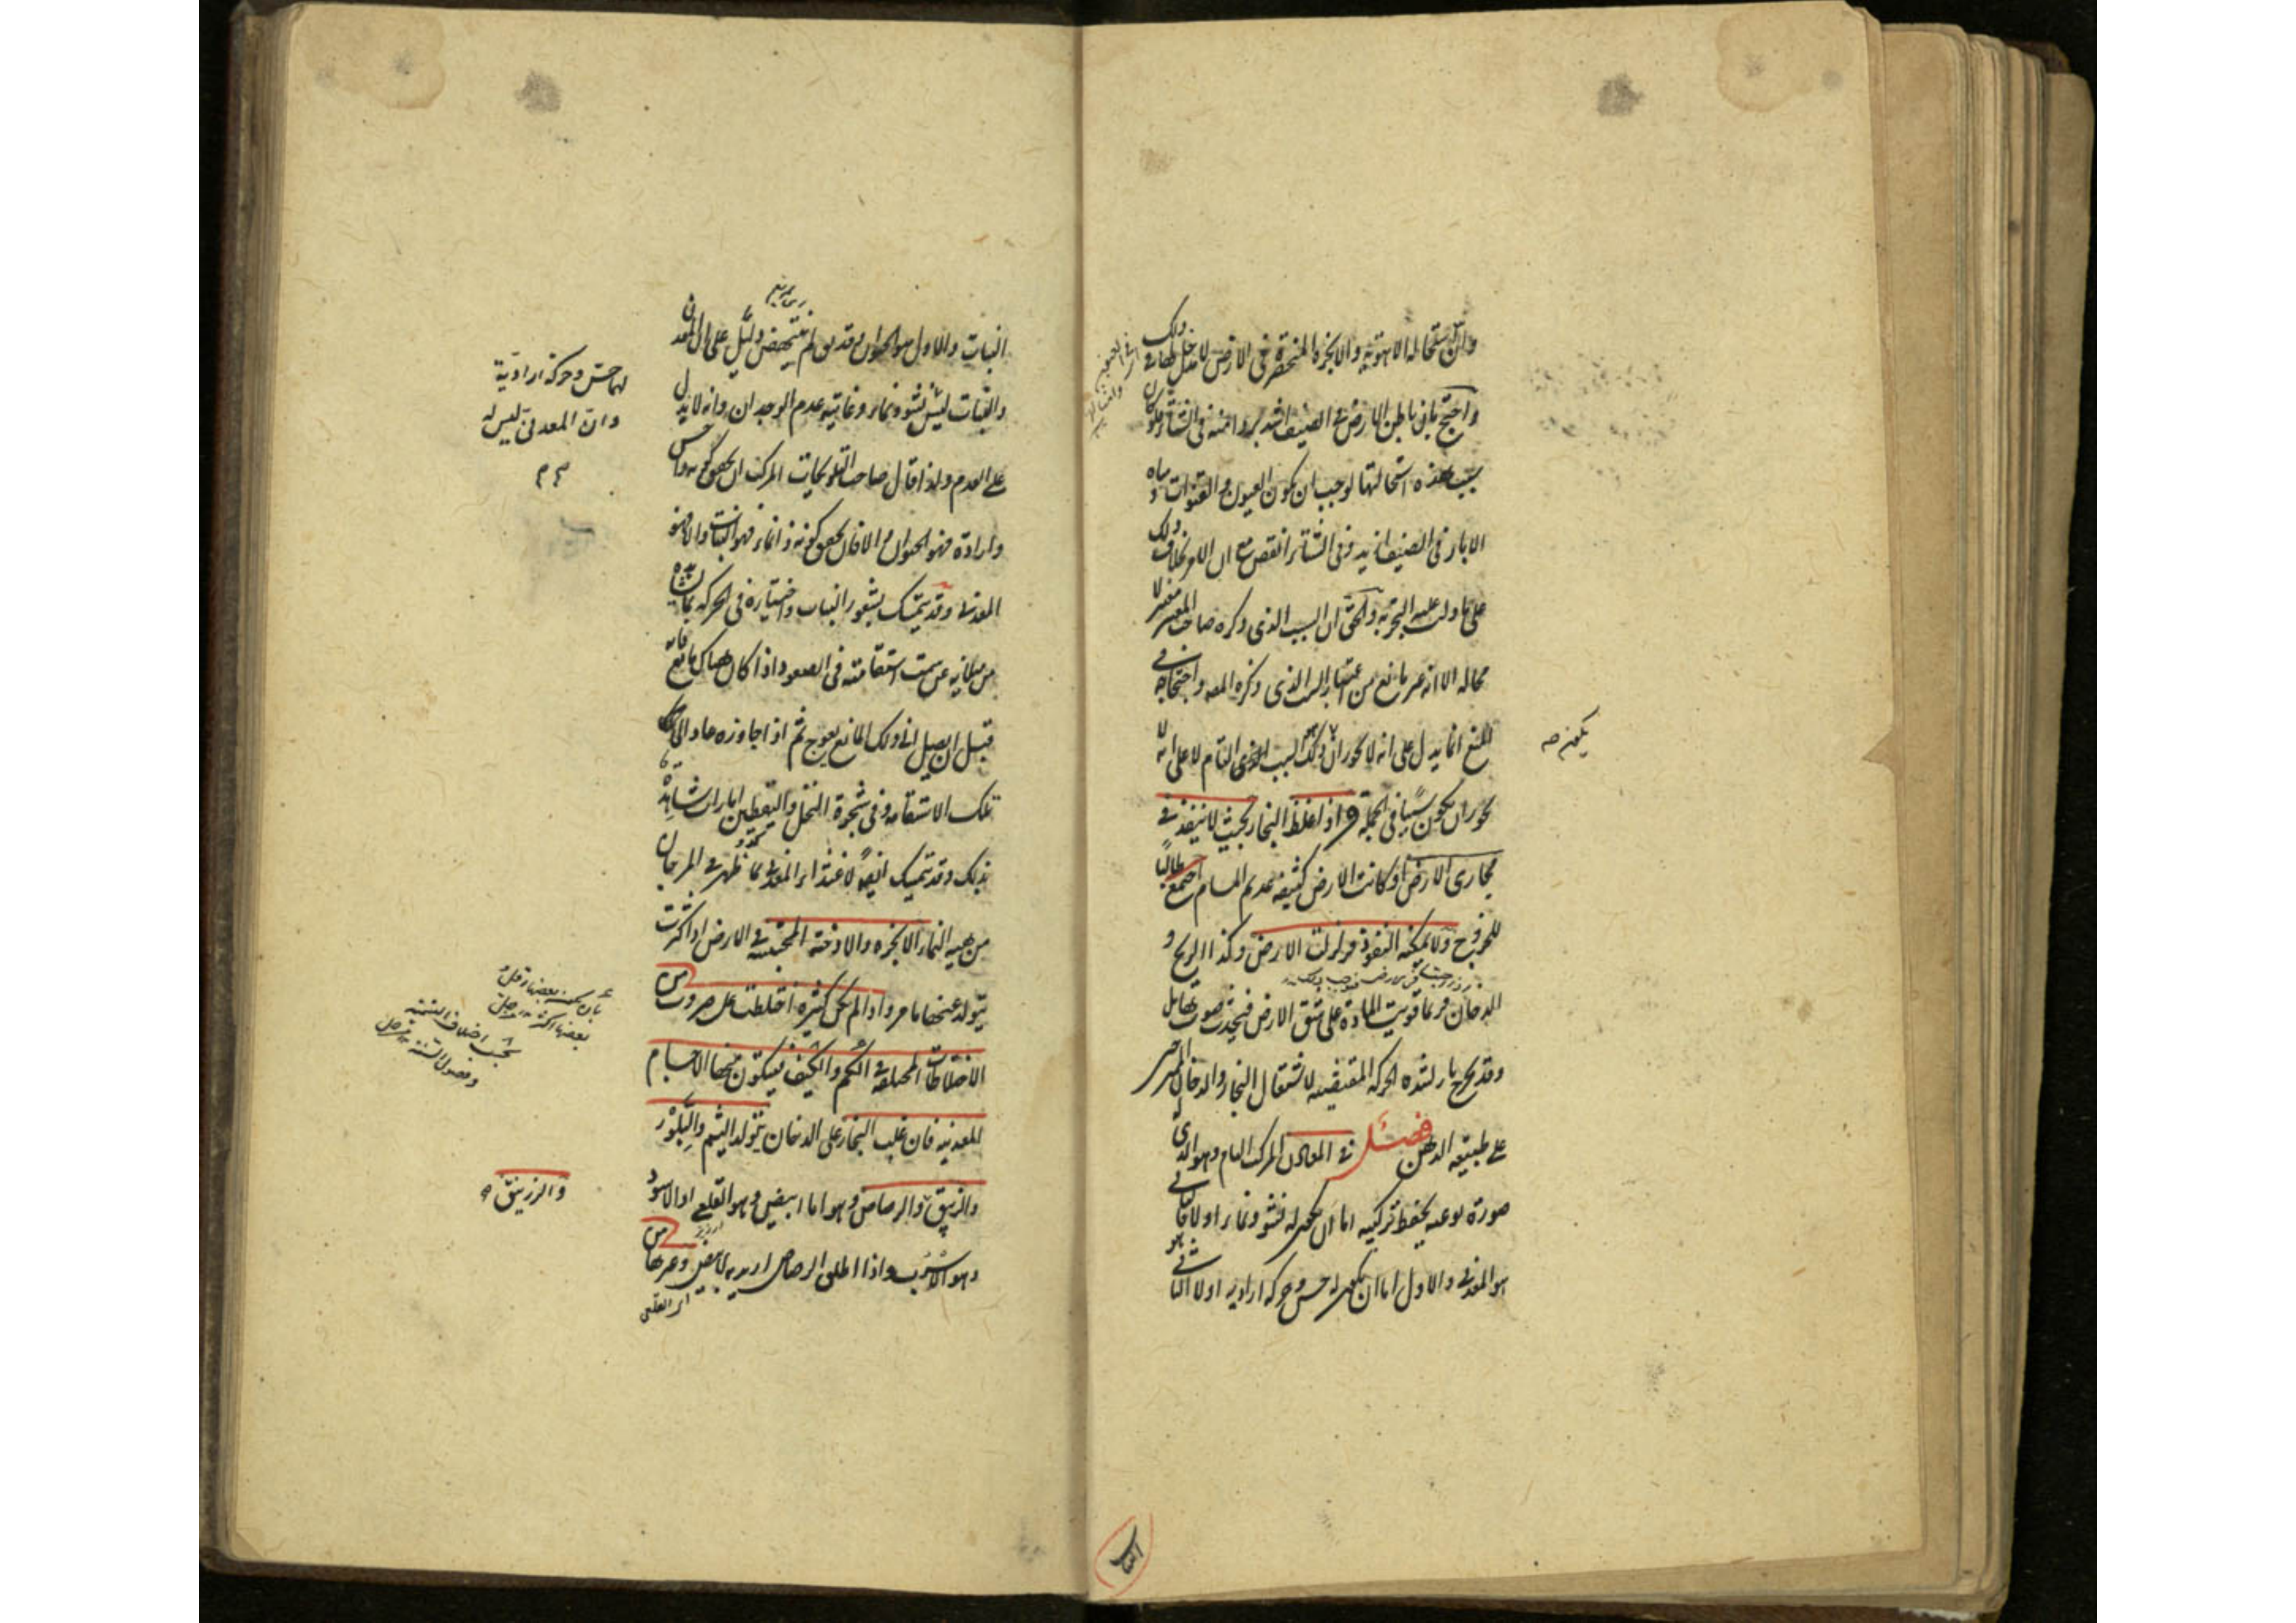 وان استحالة الاهوية والابخرة المنحصرة فى الارض لا مدخل لها فى ذلك
واحتج بان باطن الارض فى الصيف اشد بردا منه فى الشتاء فلو كان
سبب هذه استحالتها لوجب ان يكون العيون والقنوات ومياه
الابار فى الصيف ازيد وفى الشتاء انقص مع ان الامر بخلاف ذلك
على ما دلت عليه التجربة والحق ان السبب الذى ذكره صاحب المعتبر معتبر لا
محالة الا انه غير مانع من اعتبار السبب الذى ذكره المص واحتجاجه فى
المنع انما يدل على انه لا يجوز ان يكون ذلك السبب التام لا على انه لا
يجوز ان يكون سببا فى الجملة واذا غلظ البخار بحيث لا ينفذ فى
مجارى الارض او كانت الارض كثيفة عديم المسام اجتمع طالبا
للخروج ولا يمكنه النفوذ فزلزلت الارض وكذا الريح و
الدخان وربما قويت المادة على شق الارض فيحدث صوت هايل
وقد يخرج نار لشدة الحركة المقتضية لاشتعال البخار والدخان الممتزجين
على طبيعة الدهن فصل فى المعادن المركب التام وهو الذى له
صورة نوعية يحفظ تركيبه اما ان يكون له نشو ونماء او لا فالثانى
هو المعدنى والاول اما ان يكون له حس وحركة ارادية او لا الثانى هو
يكون صه
النبات والاول هو الحيوان وقد يق لم ينتهض دليل على ان المعدن
والنبات ليس نشو ونماء وغايته عدم الوجدان وانه لا يدل
على العدم ولذا قال صاحب التلويحات المركب ان تحقق كونه ذا حس
وارادة فهو الحيوان والا فان تحقق كونه ذا نماء فهو النبات والا فهو
المعدنى وقد يتمسك بشعور النبات واختياره فى الحركة بما يشاهد
من ميلانه عن سمت استقامته فى الصعود اذا كان هناك مانع فانه
قبل ان يصل الى ذلك المانع يعوج ثم اذا جاوزه عاد الى
تلك الاستقامة وفى شجرة النخل واليقطين امارات شاهدة
بذلك وقد يتمسك ايضا لاغتذاء المعدنى بما ظهر فى المرجان
من هيئة النماء الابخرة والادخنة المحتبسة فى الارض اذا كثرت
يتولد عنها ما مر واذا لم يكن كثيرة اختلطت على ضروب من
الاختلاطات المختلفة فى الكم والكيف فيتكون منها الاجسام
المعدنية فان غلب البخار على الدخان يتولد اليشم والبلور
والزيبق والرصاص وهو اما ابيض وهو القلعى او الاسود
وهو الاسرب واذا اطلق الرصاص اريد به الابيض وغيرها من
لهما حس وحركة ارادية
وان المعدنى ليس له
والزرنيق